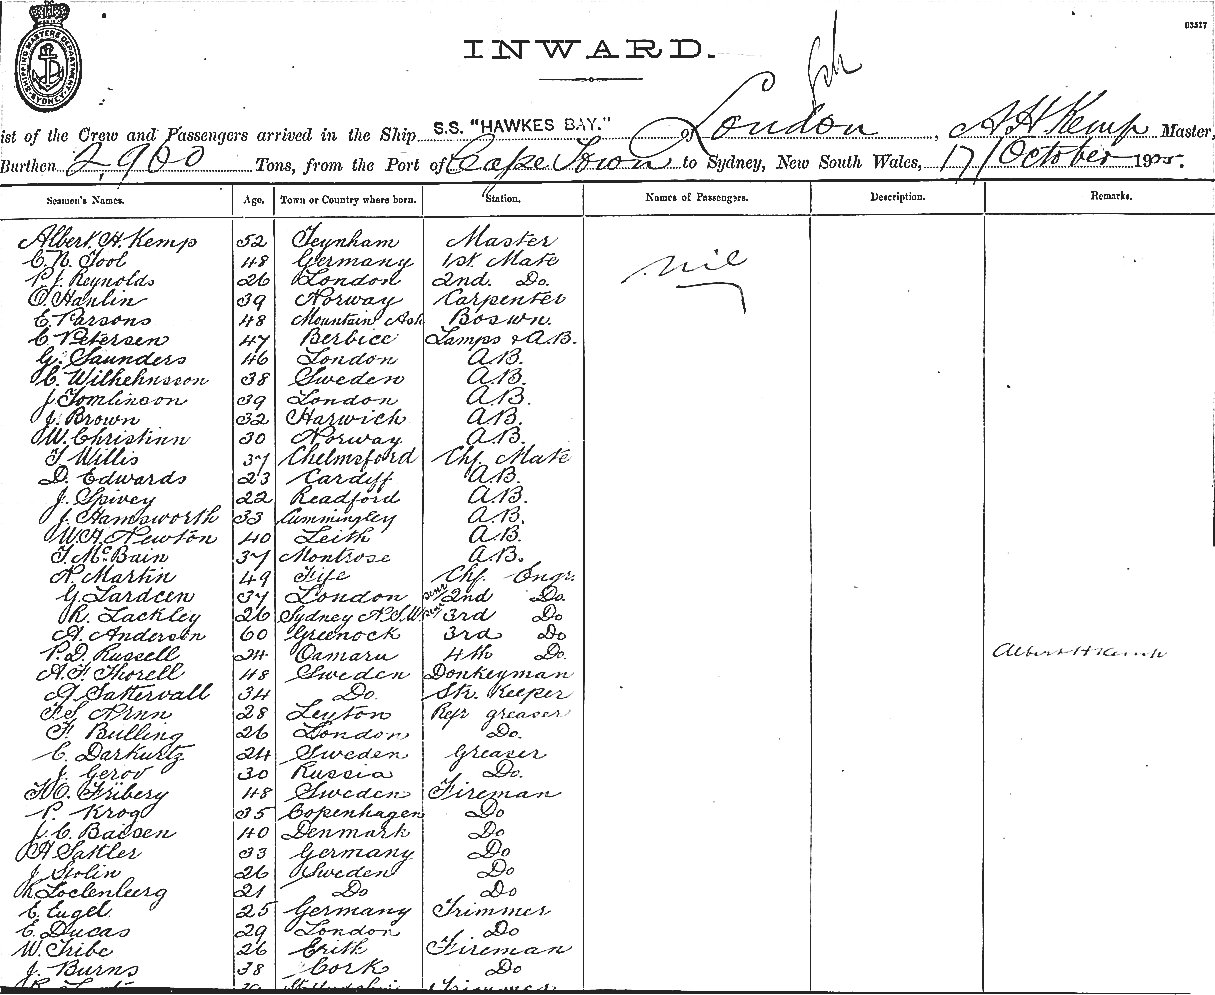 SHIPPING MASTERS DEPARTMENT SYDNEY
03527
INWARD.
ist of the Crew and Passengers arrived in the Ship S.S. "HAWKES BAY." of London, A H Kemp Master,
Burthen 2,960 Tons, from the Port of Cape Town to Sydney, New South Wales, 17/October 19
Seamen's Names. Age. Town or Country where born. Station. Names of Passengers. Description. Remarks.
Albert H. Kemp 52 Teynham Master
C. N. Tool 48 Germany 1st Mate nil
P. J. Reynolds 26 London 2nd. Do.
O. Hanlin 39 Norway Carpenter
E. Parsons 48 Mountain Ash Boswn.
C. Petersen 47 Berbice Lamps & A.B.
G. Saunders 46 London A.B.
C. Wilhehnsson 38 Sweden A.B.
J Tomlinson 39 London A.B.
J. Brown 32 Harwich A.B.
W. Christinn 30 Norway A.B.
T Willis 37 Chelmsford Chf. Mate
D. Edwards 23 Cardiff A.B.
J. Spivey 22 Readford A.B.
J. Hamsworth 33 Cummingley A.B.
W. H. Newton 40 Leith A.B.
T. McBain 37 Montrose A.B.
N. Martin 49 Fife Chf. Engr.
G. Lardeen 37 London 2nd Do.
R. Lackley 26 Sydney N.S.W. 3rd Do
A. Anderson 60 Greenock 3rd Do
P. D. Russell 24 Oamaru 4th Do. Albert H Kemp
A. F. Thorell 48 Sweden Donkeyman
G. Sattervall 34 Do. Str. Keeper
F. S. Nunn 28 Leyton Refr greaser
F. Bulling 26 London Do.
C. Darkurtz 24 Sweden Greaser
J. Gerov 30 Russia Do.
K. O. Fribery 48 Sweden Fireman
P. Krog 35 Copenhagen Do
J. C. Bassen 40 Denmark Do
A Sattler 33 Germany Do
J. Stolin 26 Sweden Do
R Loclenberg 21 Do Do
E. Eugel 25 Germany Trimmer
E. Ducas 29 London Do
W. Tribe 26 Erith Fireman
J. Burns 38 Cork Do